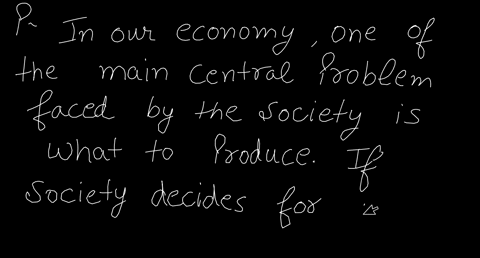 P~ In our economy, one of
the main Central Problem
faced by the Society is
what to Produce. If
Society decides for